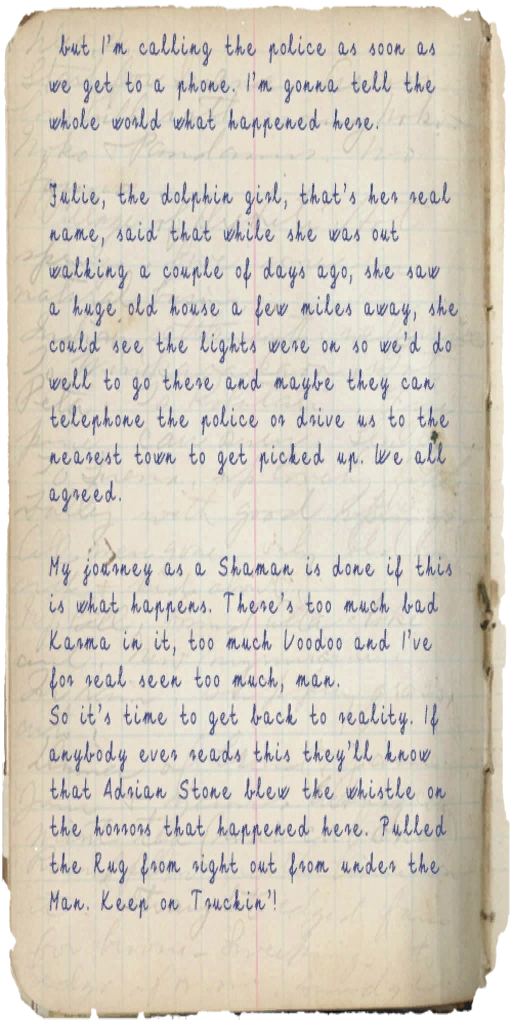 but I'm calling the police as soon as
we get to a phone. I'm gonna tell the
whole world what happened here.
Julie, the dolphin girl, that's her real
name, said that while she was out
walking a couple of days ago, she saw
a huge old house a few miles away, she
could see the lights were on so we'd do
well to go there and maybe they can
telephone the police or drive us to the
nearest town to get picked up. We all
agreed.
My journey as a Shaman is done if this
is what happens. There's too much bad
Karma in it, too much Voodoo and I've
for real seen too much, man.
So it's time to get back to reality. If
anybody ever reads this they'll know
that Adrian Stone blew the whistle on
the horrors that happened here. Pulled
the Rug from right out from under the
Man. Keep on Truckin'!